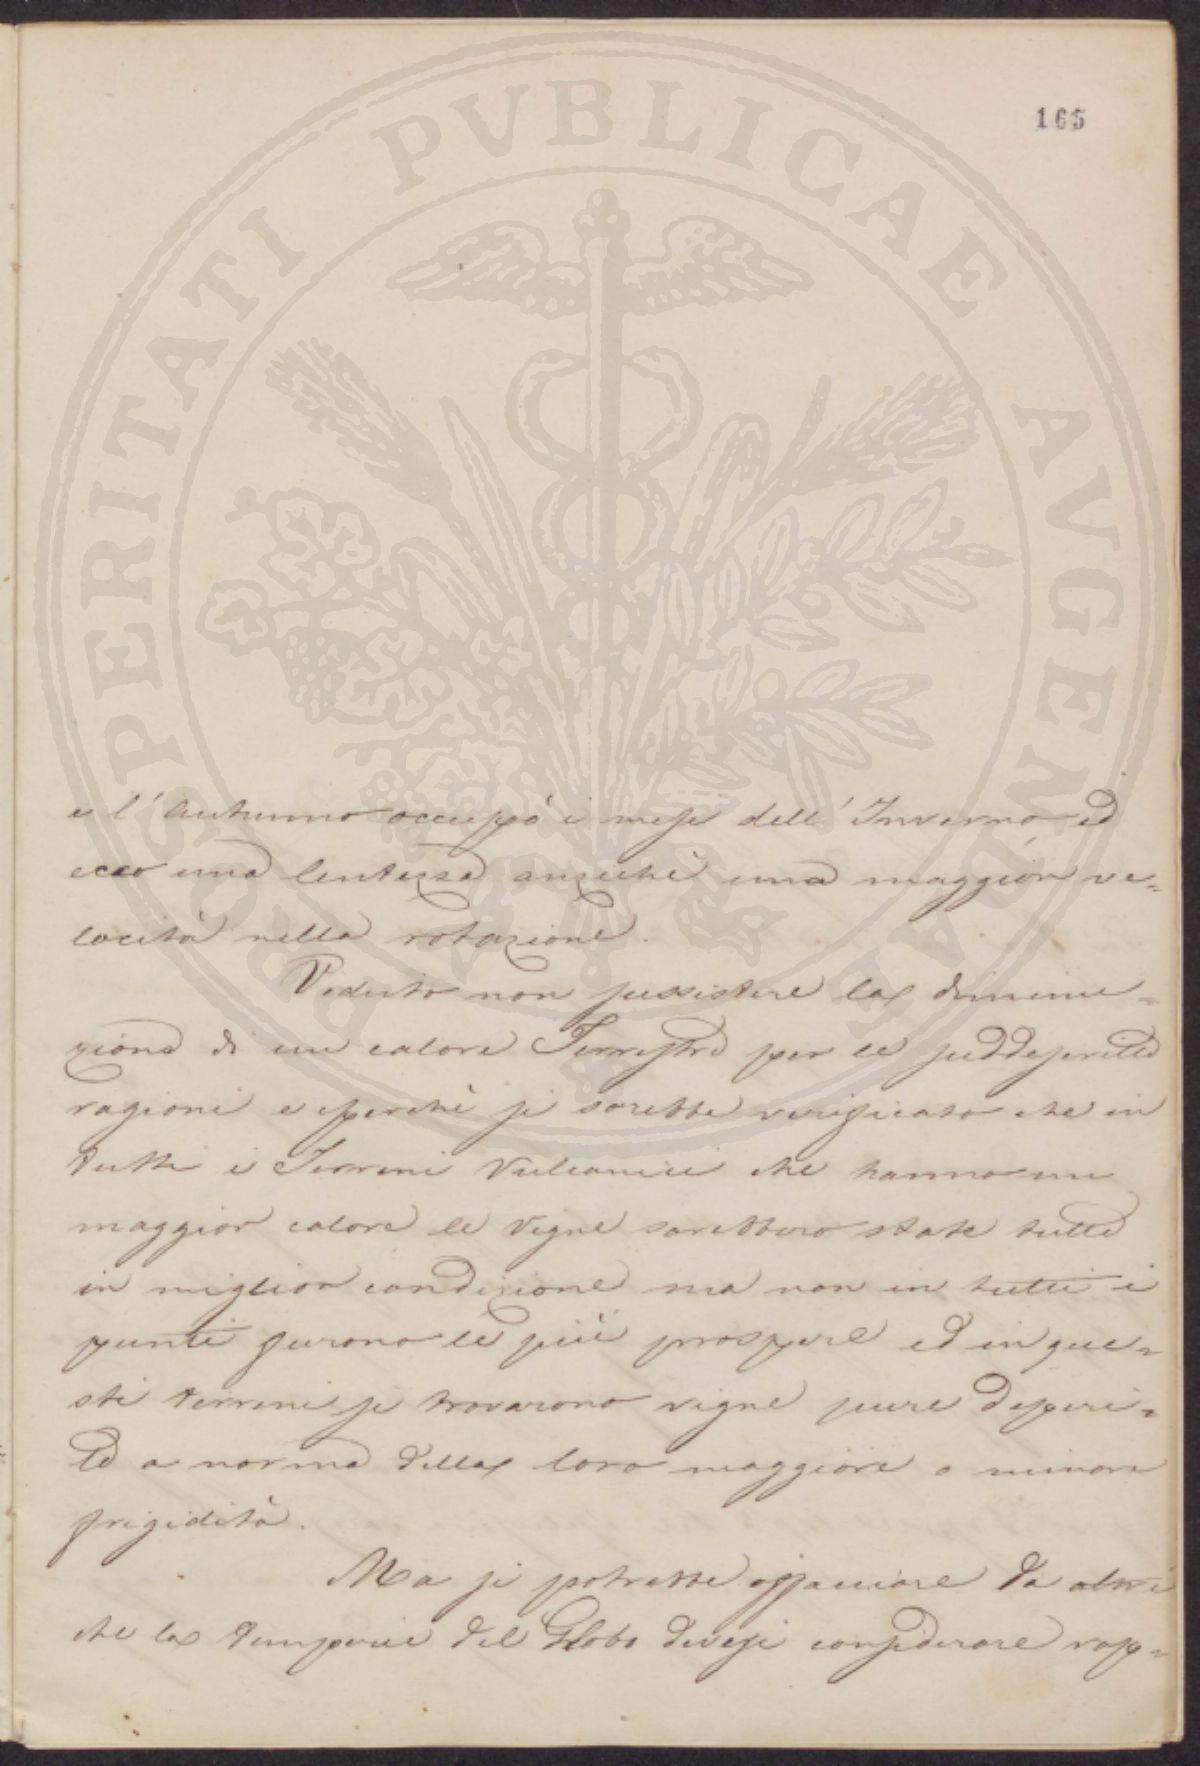 165
PROSPERITATI PVBLICAE AVGENDAE
e l'Autunno occupò i mesi dell'Inverno ed
ecco una lentezza anzichè una maggior ve=
locità nella rotazione.
Veduto non sussistere la diminu=
zione di un calore Terrestre per le suddesperite
ragioni e perchè si sarebbe verificato che in
tutti i Terreni Vulcanici che hanno un
maggior calore le Vigne sarebbero state tutte
in miglior condizione ma non in tutti i
punti furono le più prospere ed in que=
sti terreni si trovarono vigne pure deperi=
te a norma della loro maggiore o minore
frigidità.
Ma si potrebbe affacciare da altri
che la temperie del Globo devesi considerare rap=